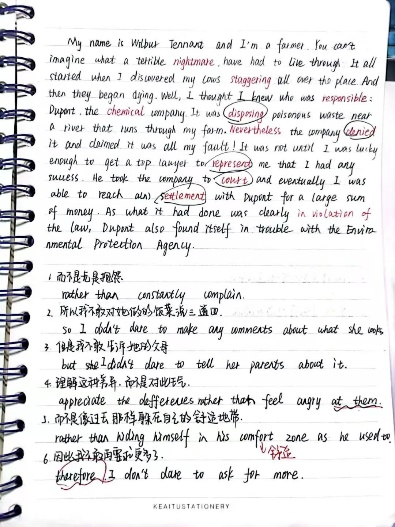 My name is Wilbur Tennant and I'm a farmer. You can't
imagine what a terrible nightmare, have had to live through. It all
started when I discovered my cows staggering all over the place. And
then they began dying. Well, I thought I knew who was responsible:
Dupont, the chemical company. It was disposing poisonous waste near
a river that runs through my farm. Nevertheless the company denied
it and claimed it was all my fault! It was not until I was lucky
enough to get a top lawyer to represent me that I had any
success. He took the company to court and eventually I was
able to reach a settlement with Dupont for a large sum
of money. As what it had done was clearly in violation of
the law, Dupont also found itself in trouble with the Environ-
mental Protection Agency.
1. 而不是老是抱怨
rather than constantly complain.
2. 所以我不敢对她做的饭菜说三道四.
so I didn't dare to make any comments about what she cooks
3. 但是我不敢告诉她的父母
but she I didn't dare to tell her parents about it.
4. 理解这种差异,而不是对此生气.
appreciate the defferences rather than feel angry at them.
5. 而不是像过去那样躲在自己的舒适地带.
rather than hiding himself in his comfort zone as he used to.
6. 因此我不敢再要求更多了. 舒适
therefore I don't dare to ask for more.
KEAITUSTATIONERY